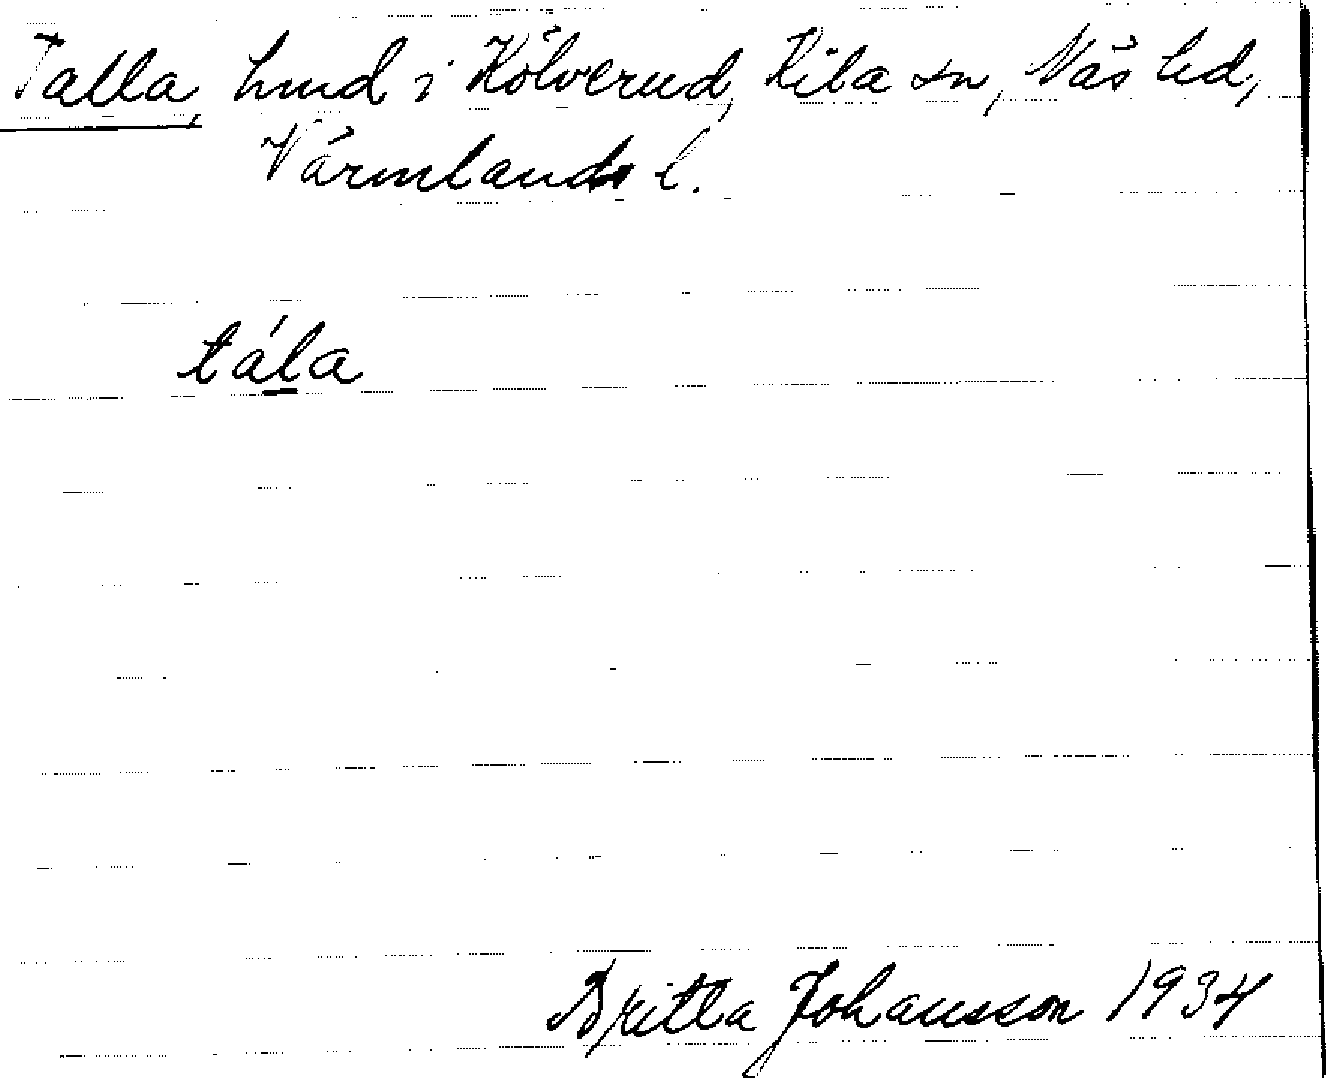 Talla, hund i Kölverud, Kila sn, Näs hd,
Värmlands l.
tála
Britta Johansson 1934